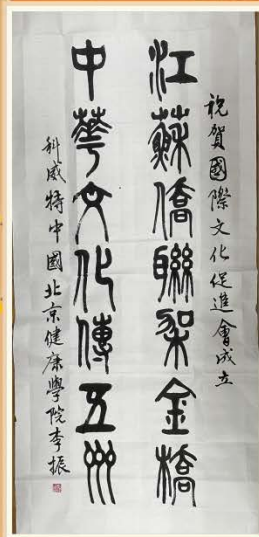 祝賀國際文化促進會成立
江蘇僑聯架金橋
中華文化傳五洲
科威特中國北京健康學院李振